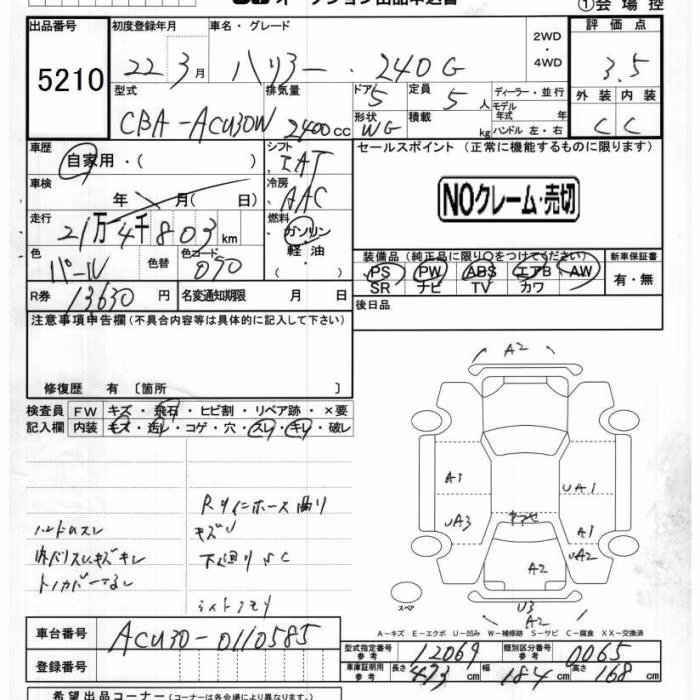 オークション出品申込書 ①会場控
出品番号 初度登録年月 車名・グレード 2WD ・ 4WD 評価点
5210 22 3月 ハリアー ・ 240G 3.5
型式 排気量 ドア 5 定員 5人 ディーラー・並行 外装 内装
CBA-ACU30W 2400cc 形状 WG 積載 kg モデル年式 年 ハンドル 左・右 C C
車歴 自家用・( ) シフト IAT セールスポイント (正常に機能するものに限ります)
車検 年 月( 日) 冷房 AAC NOクレーム・売切
走行 21万4千803km 燃料 ガソリン・軽油
色 パール 色替 色コード 070 装備品(純正品に限り○をつけてください) 新車保証書
PS PW ABS エアB AW 有・無
SR ナビ TV カワ
R券 13630円 名変通知期限 月 日 後日品
注意事項申告欄(不具合内容等は具体的に記入して下さい)
修復歴 有 〔箇所 〕
検査員 FW キズ・飛石・ヒビ割・リペア跡・×要
記入欄 内装 モズ・汚レ・コゲ・穴・スレ・キレ・破レ
Rサイドホース曲り
ハンドルスレ キズU
内バリスレキズキレ 下廻りSC
トノカバーなし
A2
A1 UA1
UA3 A1
UA2
A2
スペア U3
A2
A-キズ E-エクボ U-凹み W-補修跡 S-サビ C-腐食 XX-交換済
車台番号 ACU30-0110585
登録番号
型式指定番号 参考 12069 類別区分番号 参考 0065
車庫証明用 参考 長さ 473cm 幅 184cm 高さ 168cm
希望出品コーナー(コーナーは各会場により異なります)